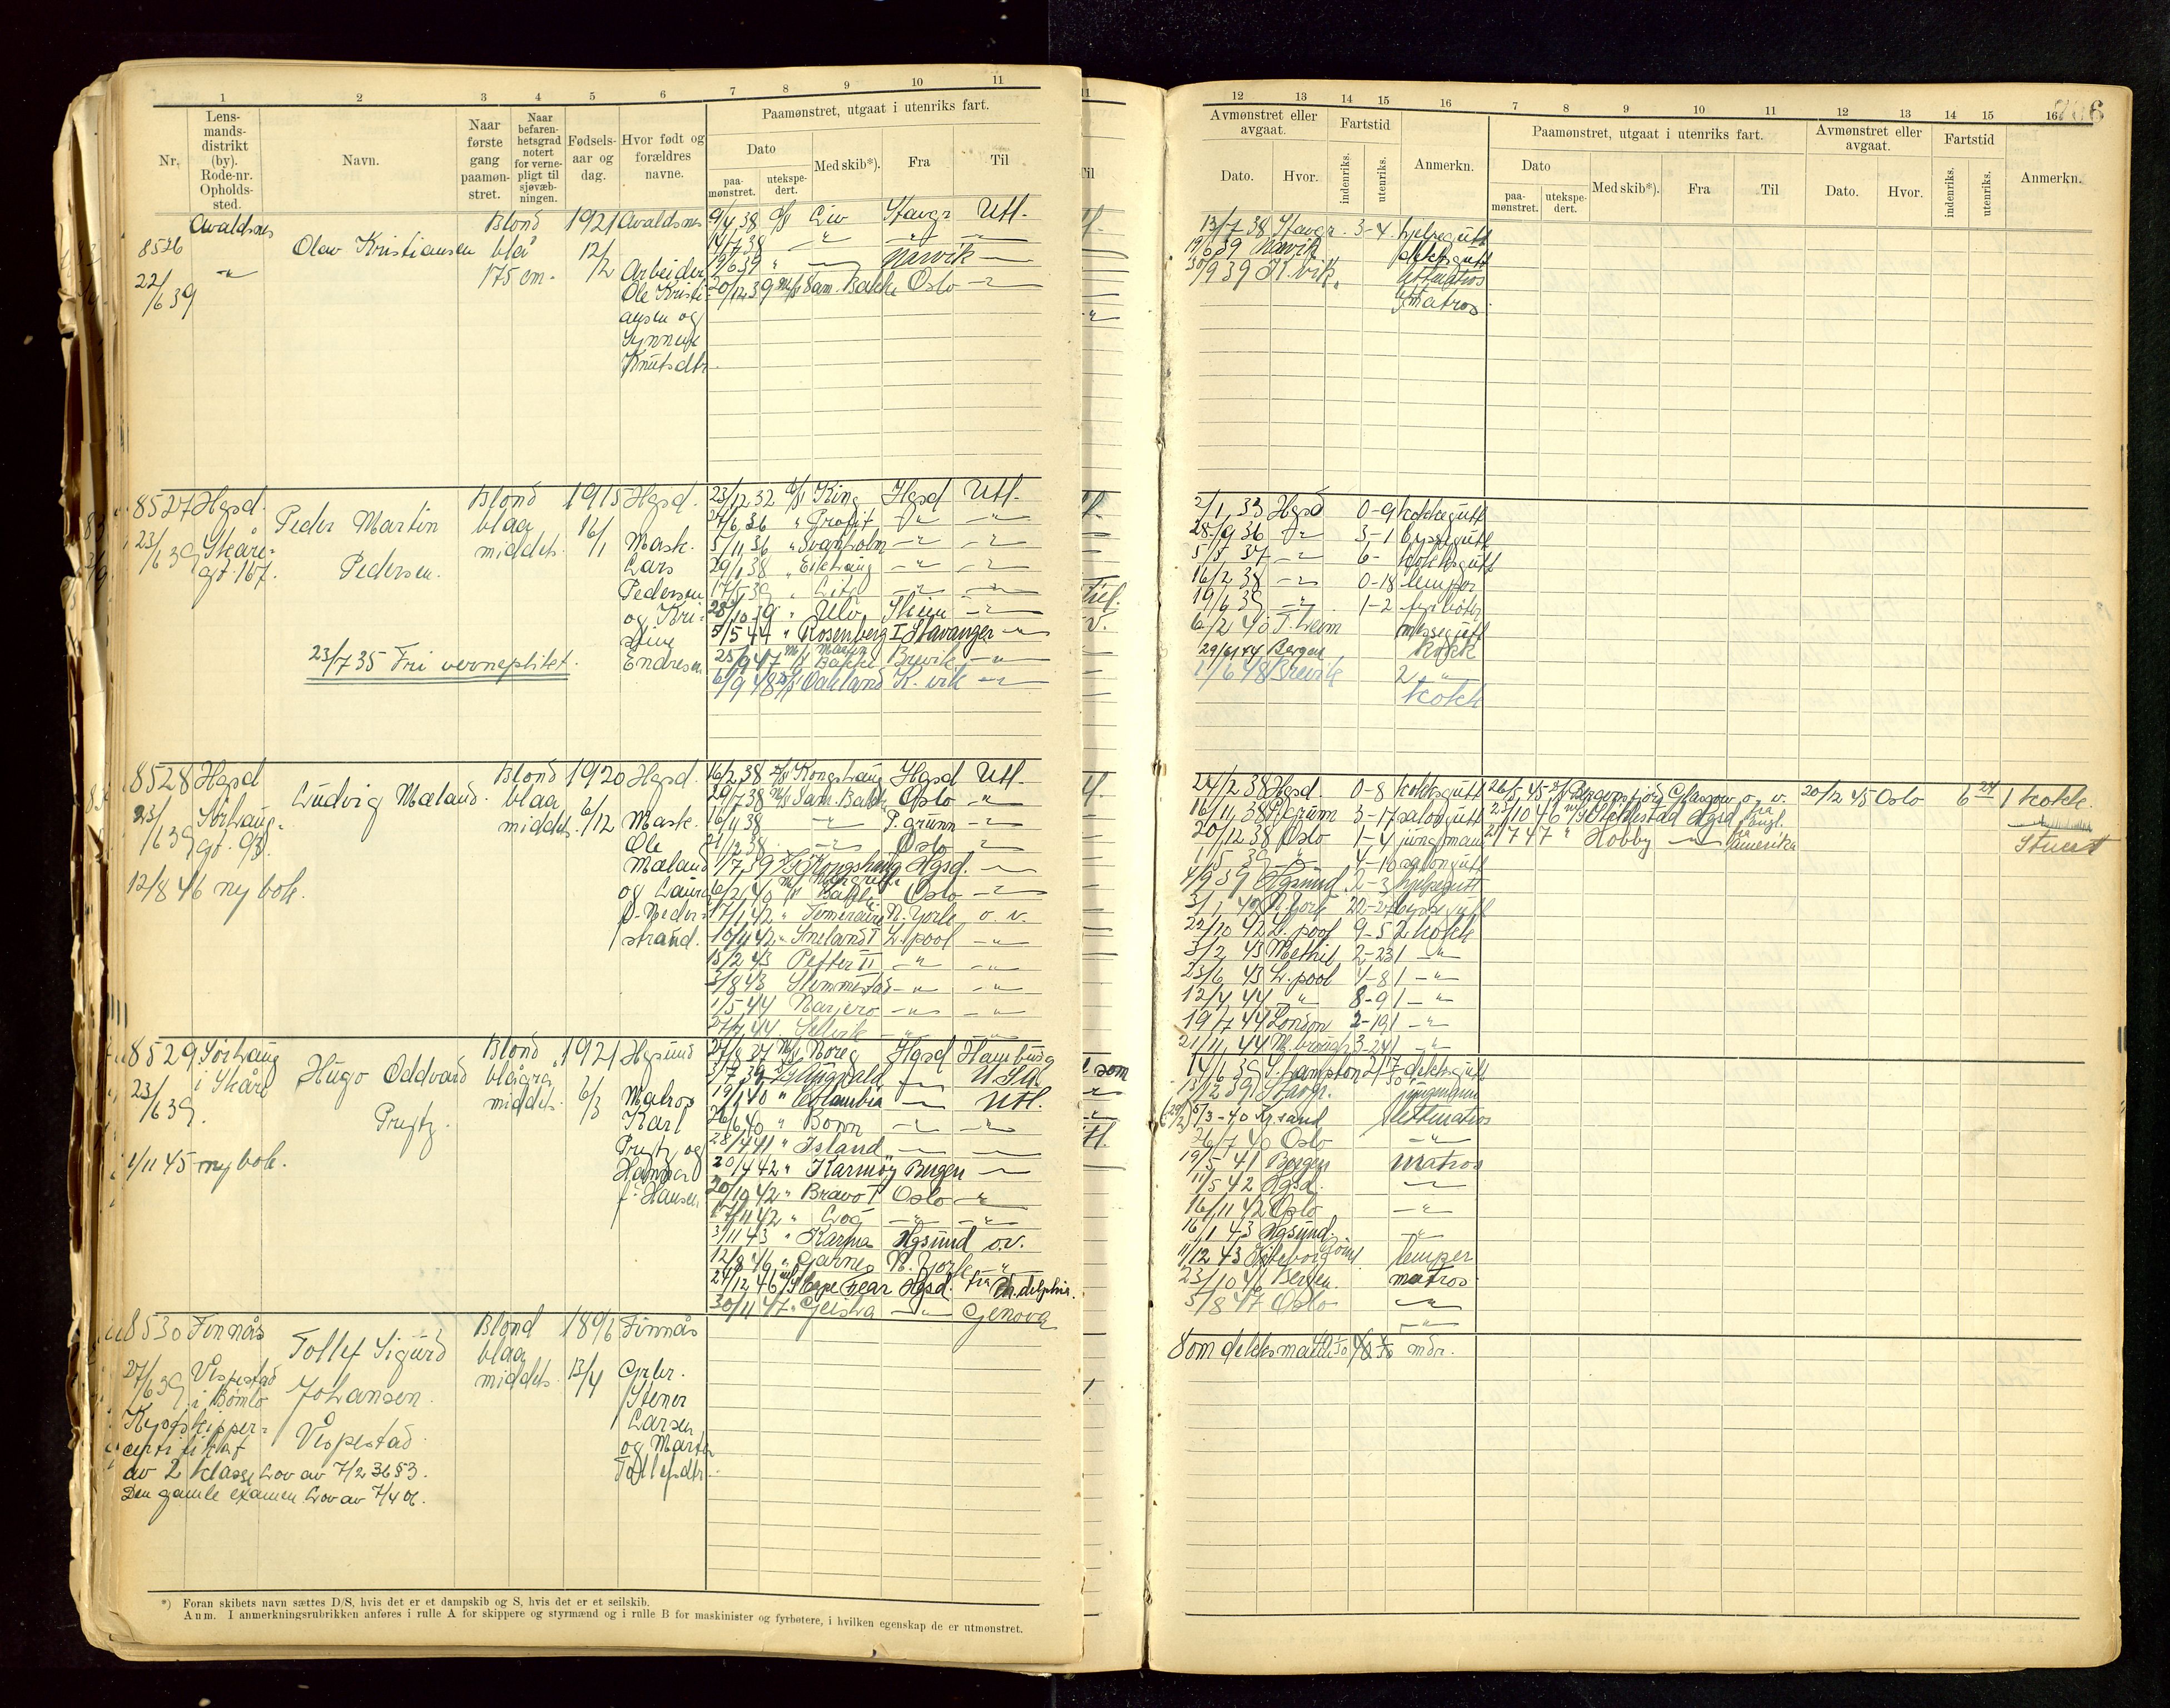 1 2 3 4 5 6 7 8 9 10 11
Nr. Lensmandsdistrikt (by). Rode-nr. Opholdssted. Navn. Naar første gang paamønstret. Naar befarenhetsgrad notert for vernepligt til sjøvæbningen. Fødselsaar og dag. Hvor født og forældres navne.
Paamønstret, utgaat i utenriks fart.
Dato Med skib*). Fra Til
paamønstret. utekspedert.
Avaldsnes Blond 1921 Avaldsnes 9/4 38 Liv Stavgr Utl.
8526 Olav Kristiansen blå 12/2 14/7 38 -"- -"- -"-
22/6 39 -"- 175 cm. Arbeider 19/6 39 " -"- Narvik -"-
Ole Kristi- 20/12 39 M/S Sam. Bakke Oslo -"-
ansen og
Synnøve
Knutsdtr.
8527 Hgsd. Blond 1915 Hgsd. 23/12 32 D/S King Hgsd Utl.
Peder Martin blaa 16/1 27/6 36 " Profit -"- -"-
23/6 39 Skåre- middels. Mask. 5/11 36 " Svanholm -"- -"-
gt. 167. Pedersen. Lars 29/1 38 " Eikhaug -"- -"-
Pedersen 17/5 39 " -"- -"-
og Kri- 28/10 39 " Ulv Skien -"-
stine 5/5 44 " Rosenberg I Stavanger -"-
23/7 35 Fri verneplikt. Endresen 25/9 47 M/S Martin Bakke Brevik -"-
6/9 48 D/S Oakland K.vik -"-
8528 Hgsd Blond 1920 Hgsd. 16/2 38 D/S Kongshaug Hgsd Utl.
Ludvig Mæland. blaa 6/12 29/7 38 M/S Sam. Bakke Oslo -"-
23/6 39 Sørhaug- middels. Mask. 16/11 38 -"- P.grunn -"-
gt. 93. Ole 21/12 38 -"- Oslo -"-
Mæland 1/7 39 D/S Kongshaug Hgsd. -"-
12/8 46 ny bok. og Laura 6/2 40 M/S Marg​rethe Bakke Oslo -"-
f. Neder- 17/1 42 " Temeraire N. York o. v.
strand. 10/11 42 " Sneland I L.pool -"-
15/2 43 Petter II -"- -"-
3/8 43 Slemmestad -"- -"-
1/5 44 Norjerv -"- -"-
27/7 44 Selvik -"- -"-
8529 Sørhaug Blond 1921 Hgsund 27/8 37 M/S Noreg Hgsd Hamburg
i Skåre Hugo Oddvard blågrå 6/3 3/7 39 D/S Augvald -"- U.S.A.
23/6 39. middels. Matros 19/1 40 " Columbia -"- Utl.
Prytz. Karl 26/6 40 " Bonn -"- -"-
Prytz og 28/4 41 " Island -"- -"-
1/11 45 ny bok. 20/4 42 " Karmøy Bergen -"-
f. Hansen 20/10 42 " Bravo I Oslo -"-
17/11 42 " Log -"- -"-
3/11 43 " Karma Hgsund o.v.
12/8 46 " Garnes N. York -"-
24/12 46 M/S Cape Fear Hgsd. fra Ph.delphia.
30/11 47 " Geisha -"- Genova
8530 Finnås Blond 1896 Finnås
Tollef Sigurd blaa 13/4
27/6 39 Vespestad middels. Grbr.
i Bømlo Johansen Stener
Kystskipper- Larsen
certifikat Vespestad. og Marta
av 2 klasse Lov av 7/2 36 § 3. Tollefsdtr.
Den gamle examen Lov av 7/4 06.
*) Foran skibets navn sættes D/S, hvis det er et dampskib og S, hvis det er et seilskib.
Anm. I anmerkningsrubrikken anføres i rulle A for skippere og styrmænd og i rulle B for maskinister og fyrbøtere, i hvilken egenskap de er utmønstret.
12 13 14 15 16 7 8 9 10 11 12 13 14 15 16
Avmønstret eller avgaat. Fartstid Paamønstret, utgaat i utenriks fart. Avmønstret eller avgaat. Fartstid
Dato. Hvor. indenriks. utenriks. Anmerkn. Dato paamønstret. utekspedert. Med skib*). Fra Til Dato. Hvor. indenriks. utenriks. Anmerkn.
13/7 38 Stavgr. 3-4 hjelpegutt
19/6 39 Narvik dekksgutt
30/9 39 K.vik. lettmatros
matros.
2/1 33 Hgsd 0-9 kokkegutt
28/9 36 -"- 3-1 byssegutt
5/5 37 -"- 6- kokksgutt
16/2 38 -"- 0-18 lemper
19/6 39 -"- 1-2 fyrbøter
6/2 40 T.heim messegutt
29/6 44 Bergen kokk
1/6 48 Brevik 2 -"-
kokk
24/2 38 Hgsd. 0-8 kokksgutt 26/5 45 D/S Bjørnsfjord Glasgow o. v. 20/12 45 Oslo 6 24 1 kokk.
16/11 38 P.grunn 3-17 salongutt 23/10 46 M/S Heldestad Hgsd fra Engl.
20/12 38 Oslo 1-4 jungmann 21/7 47 " Hobby -"- fra Amerika Stuert
1/5 39 -"- 4-10 salongutt
4/9 39 Hgsund. 2-3 hjelpegutt
3/1 42 N. York 22-27 byssegutt
22/10 42 L.pool 9-5 2 kokk
3/2 43 Methil 2-23 1 -"-
23/6 43 L.pool 4-8 1 -"-
12/4 44 " 8-9 1 -"-
19/7 44 London 2-19 1 -"-
21/11 44 M.brough 3-24 1 -"-
14/6 39 S.hampton dekksgutt
13/12 39 Stavgr. jungmann
5/3-40 Kr.sand lettmatros
26/7 40 Oslo -"-
19/5 41 Bergen matros
11/5 42 Hgsd. -"-
16/11 42 Oslo -"-
16/1 43 Hgsund. -"-
11/12 43 Gøteborg lemper
23/10 46 Bergen matros
5/8 47 Oslo -"-
-"-
Som dekksmann mdr.